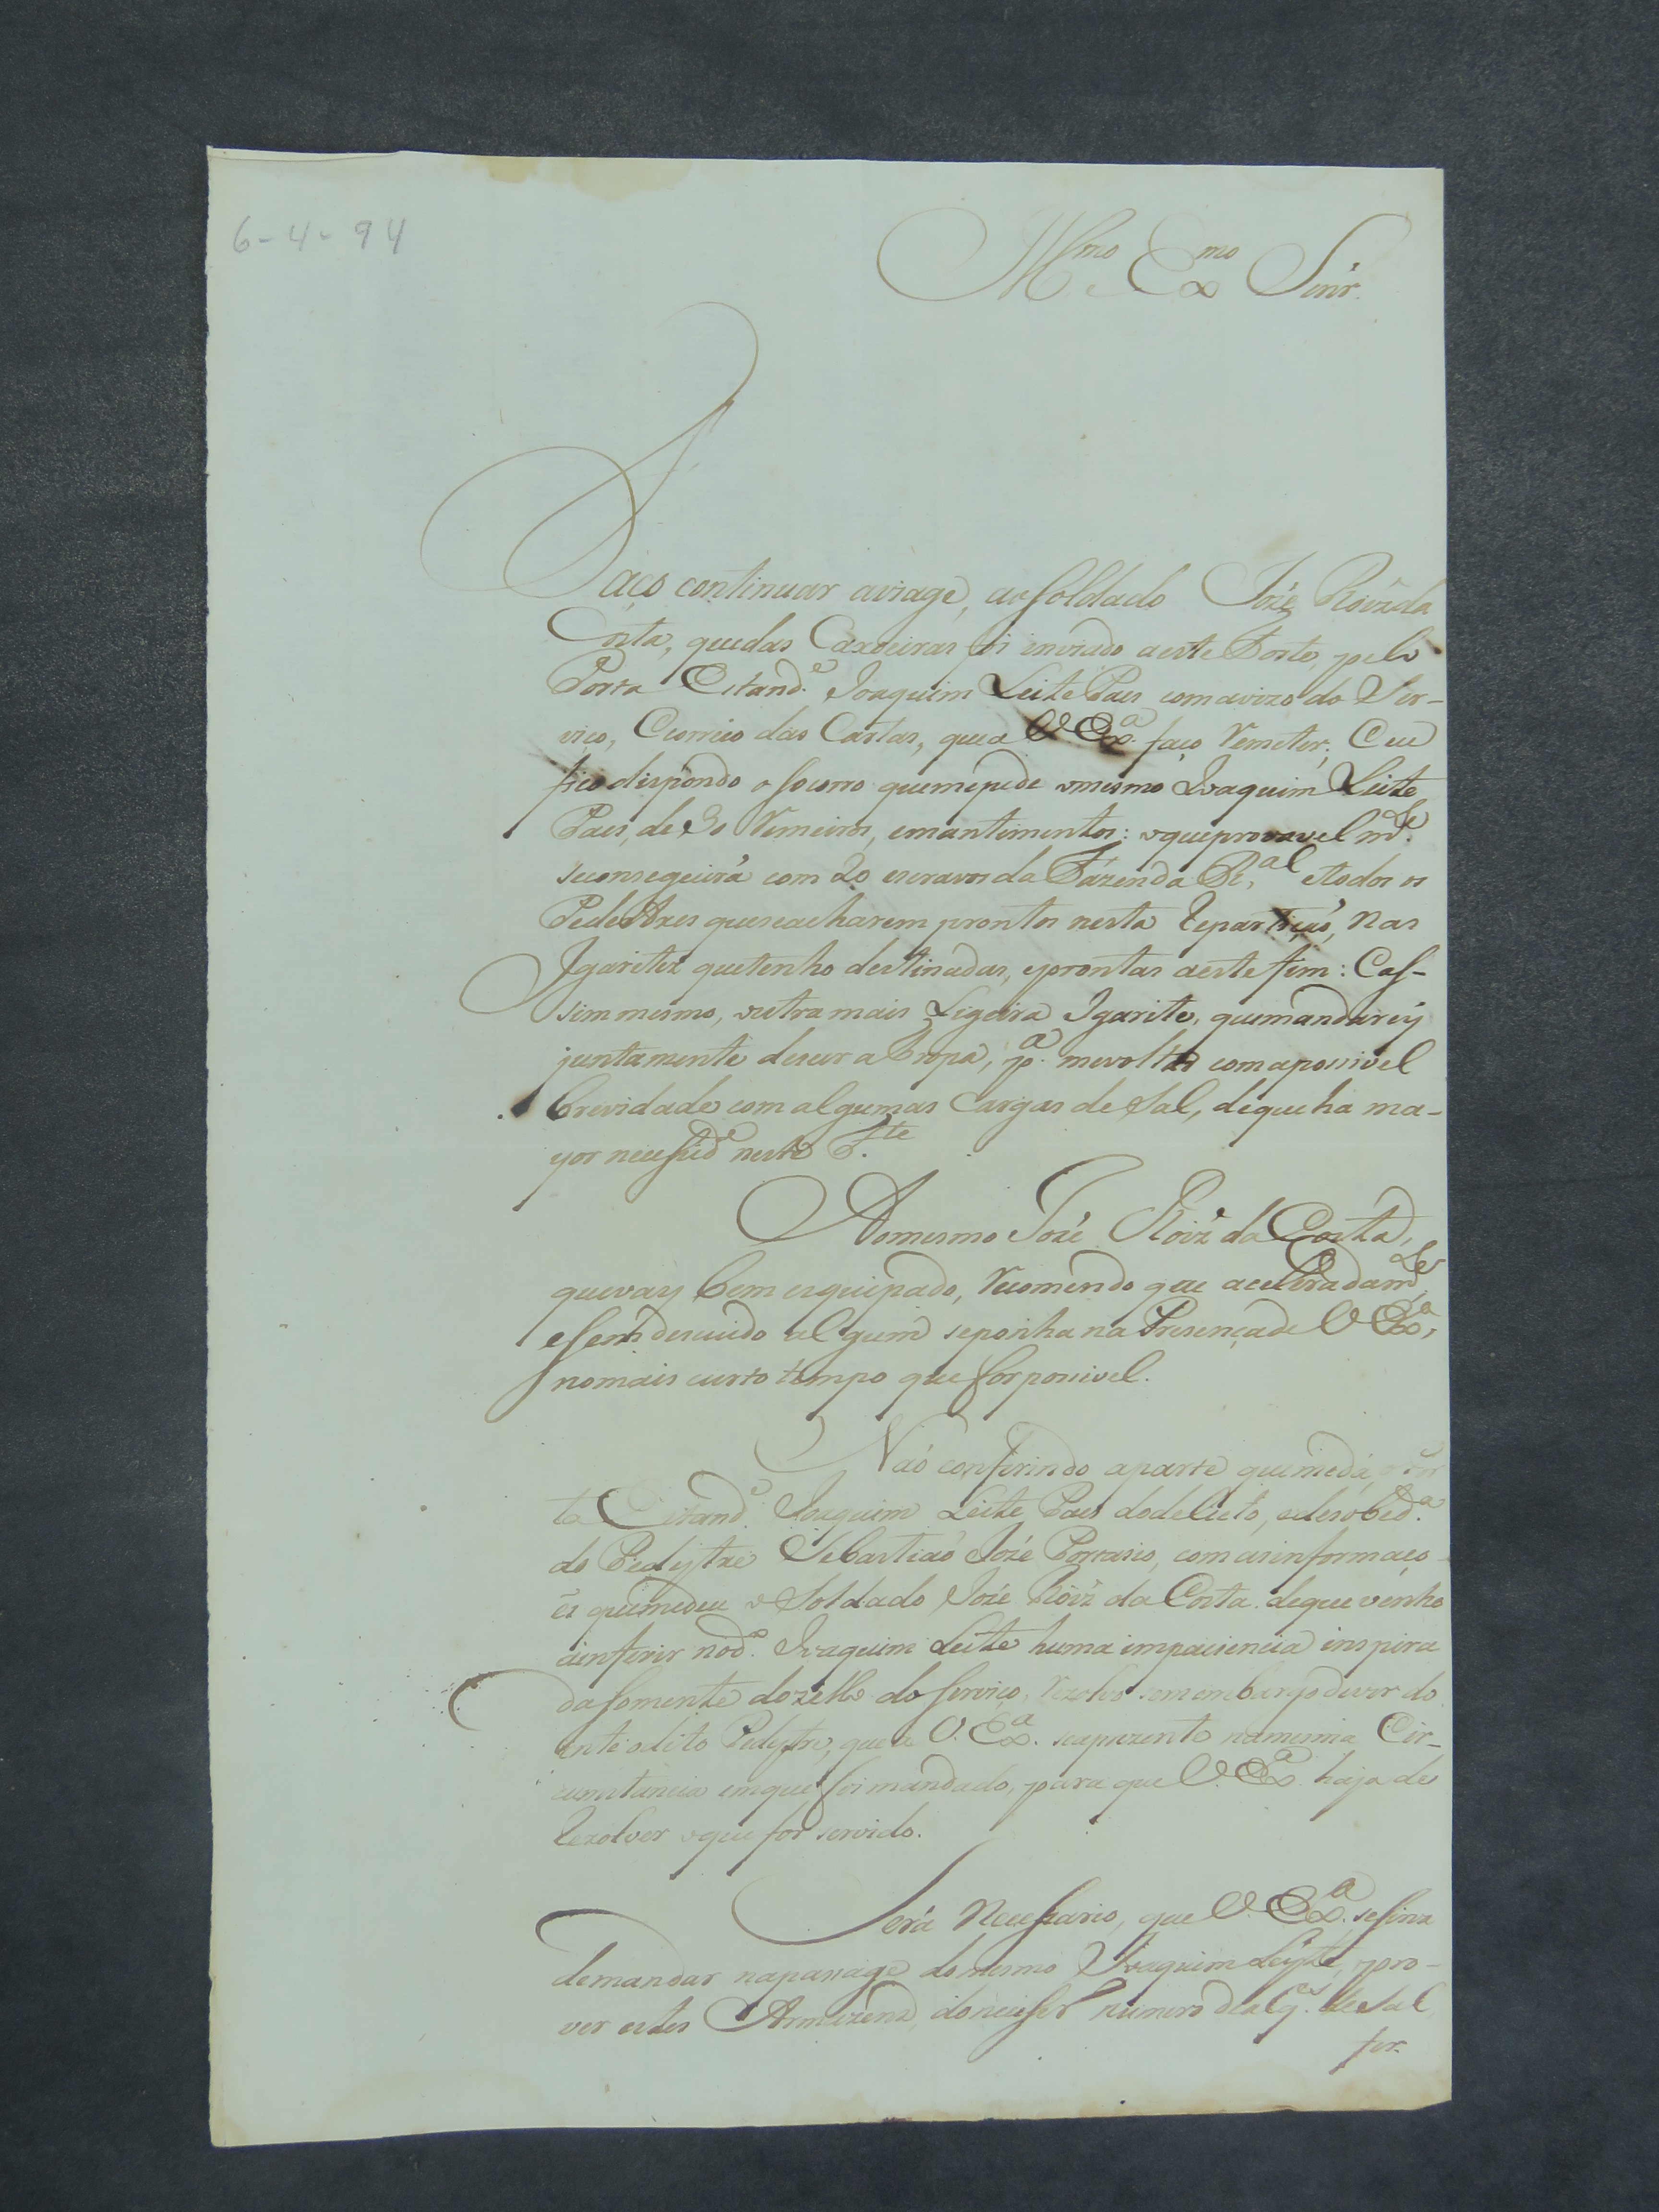 6-4-94
Illmo e Exmo Senr.
Faço continuar aviage, ao Soldado Joze Roiz da
Costa, quedas Caxoeiras foi inviado aeste Forte, pelo
Porta Estand.e Joaquim Leite Paes comavizo do Ser-
viço, Ecorreio das Cartas, que a V. Ex.a faço Remeter; Eeu
fico dispondo o socorro quemepede omesmo Joaquim Leite
Paes, de 30 Remeiros, emantimentos: oqueprovavel m.te
seconsegeirá com 20 escravos da Fazenda R.al etodos os
Pedestres queseacharem prontos nesta Repartiçaó, nas
Igarites quetenho destinadas, eprontas aeste fim: Eas-
sim mesmo, outra mais Ligeira Igarite, quemandarey
juntamente descer a Tropa, p.a mevoltar comapossivel
brevidade com algumas Cargas de Sal, dequeha ma-
yor necessid.e neste F.te
Aomesmo Joze Roiz da Costa,
quevay bem esquipado, Recomendo que aceleradam.te
esem descuido algum seponha na Presençade V Ex.a,
nomais curto tempo que for possivel.
Naó conferindo aparte quemedá o Por
ta Estand.e Joaquim Leite Paes dodelicto, edesobed.a
do Pedystre Sebastiaó Joze Porrasio, com asinformaço-
es quemedeu o Soldado Joze Roiz da Costa dequevenho
ainferir nod.o Joaquim Leite huma impaciencia inspira
da somente dozello do serviço, Rezolvo sem embargo devir do
ente odito Pedystre, que a V. Ex.a seaprezente namesma Cir-
cumstancia emque foi mandado, para que V. Ex.a haja de
Rezolver oque for servido.
Será Necessario, que V. Ex.a sesirva
demandar napassage domesmo Joaquim Leyte, pro-
ver estes Armazens, do numero dealq.es de Sal
for.